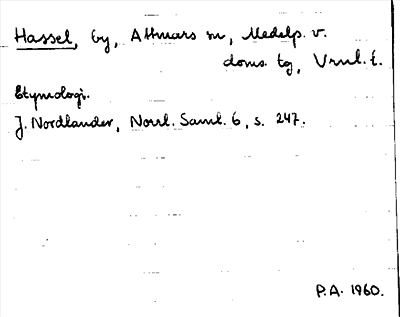 Hassel, by, Attmars sn, Medelp. v.
doms. tg, Vrnl. l.
Etymologi.
J. Nordlander, Norrl. Saml. 6, s. 247.
P.A. 1960.